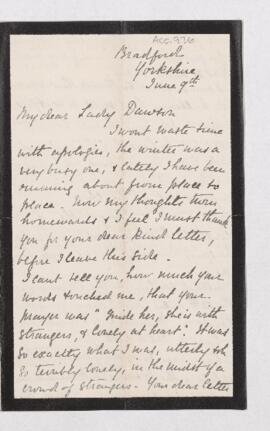 ACC.976
Bradford
Yorkshire
June 9th
My dear Lady Dawson
I wont waste time
with apologies, the winter was a
very busy one, & lately I have been
running about from place to
place. Now my thoughts turn
homewards & I feel I must thank
you for your dear kind letter,
before I leave this side.
I cant tell you, how much your
words touched me, that your
prayer was "Guide her, she is with
strangers, & lonely at heart". It was
so exactly what I was, utterly &
so terribly lonely, in the midst of a
crowd of strangers. Your dear letter